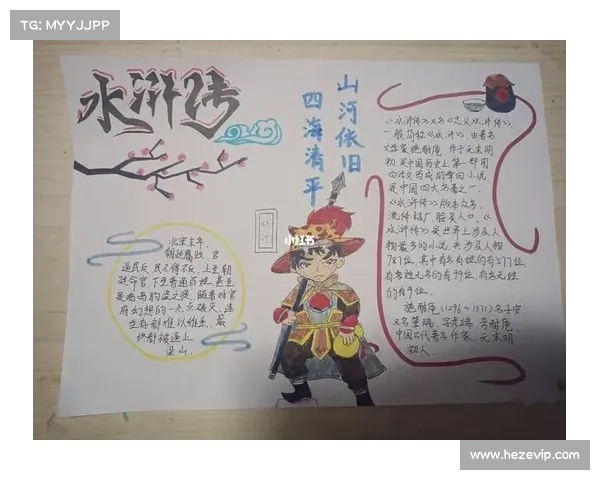 TG: MYYJJPP
水浒传
山河依旧
四海清平
小红书
北宋末年,
朝廷腐败,官
逼民反,民不得不反,上至朝
廷命官,下至普通百姓,甚至
是鸡鸣狗盗之徒,随着对官
府幻想的一点点破灭,连
生存都难以维系,最
终都被逼上
梁山。
《水浒传》又名《忠义水浒传》,
一般简称《水浒》,由著名
文学家施耐庵,作于元末明
初,是中国历史上第一部用
白话文写成的章回小说,
是中国四大名著之一,
《水浒传》版本众多,
流传极广,脍炙人口,《
水浒传》是世界上涉及人
物最多的小说,共涉及人物
787位,其中有名有姓的有577位
有名姓无名的有99位,有名无姓
的有9位。
施耐庵,(1296~1371)名子安,
又名肇瑞,字彦端,号耐庵,
中国古代著名作家,元末明
初人。
www.hezevip.com